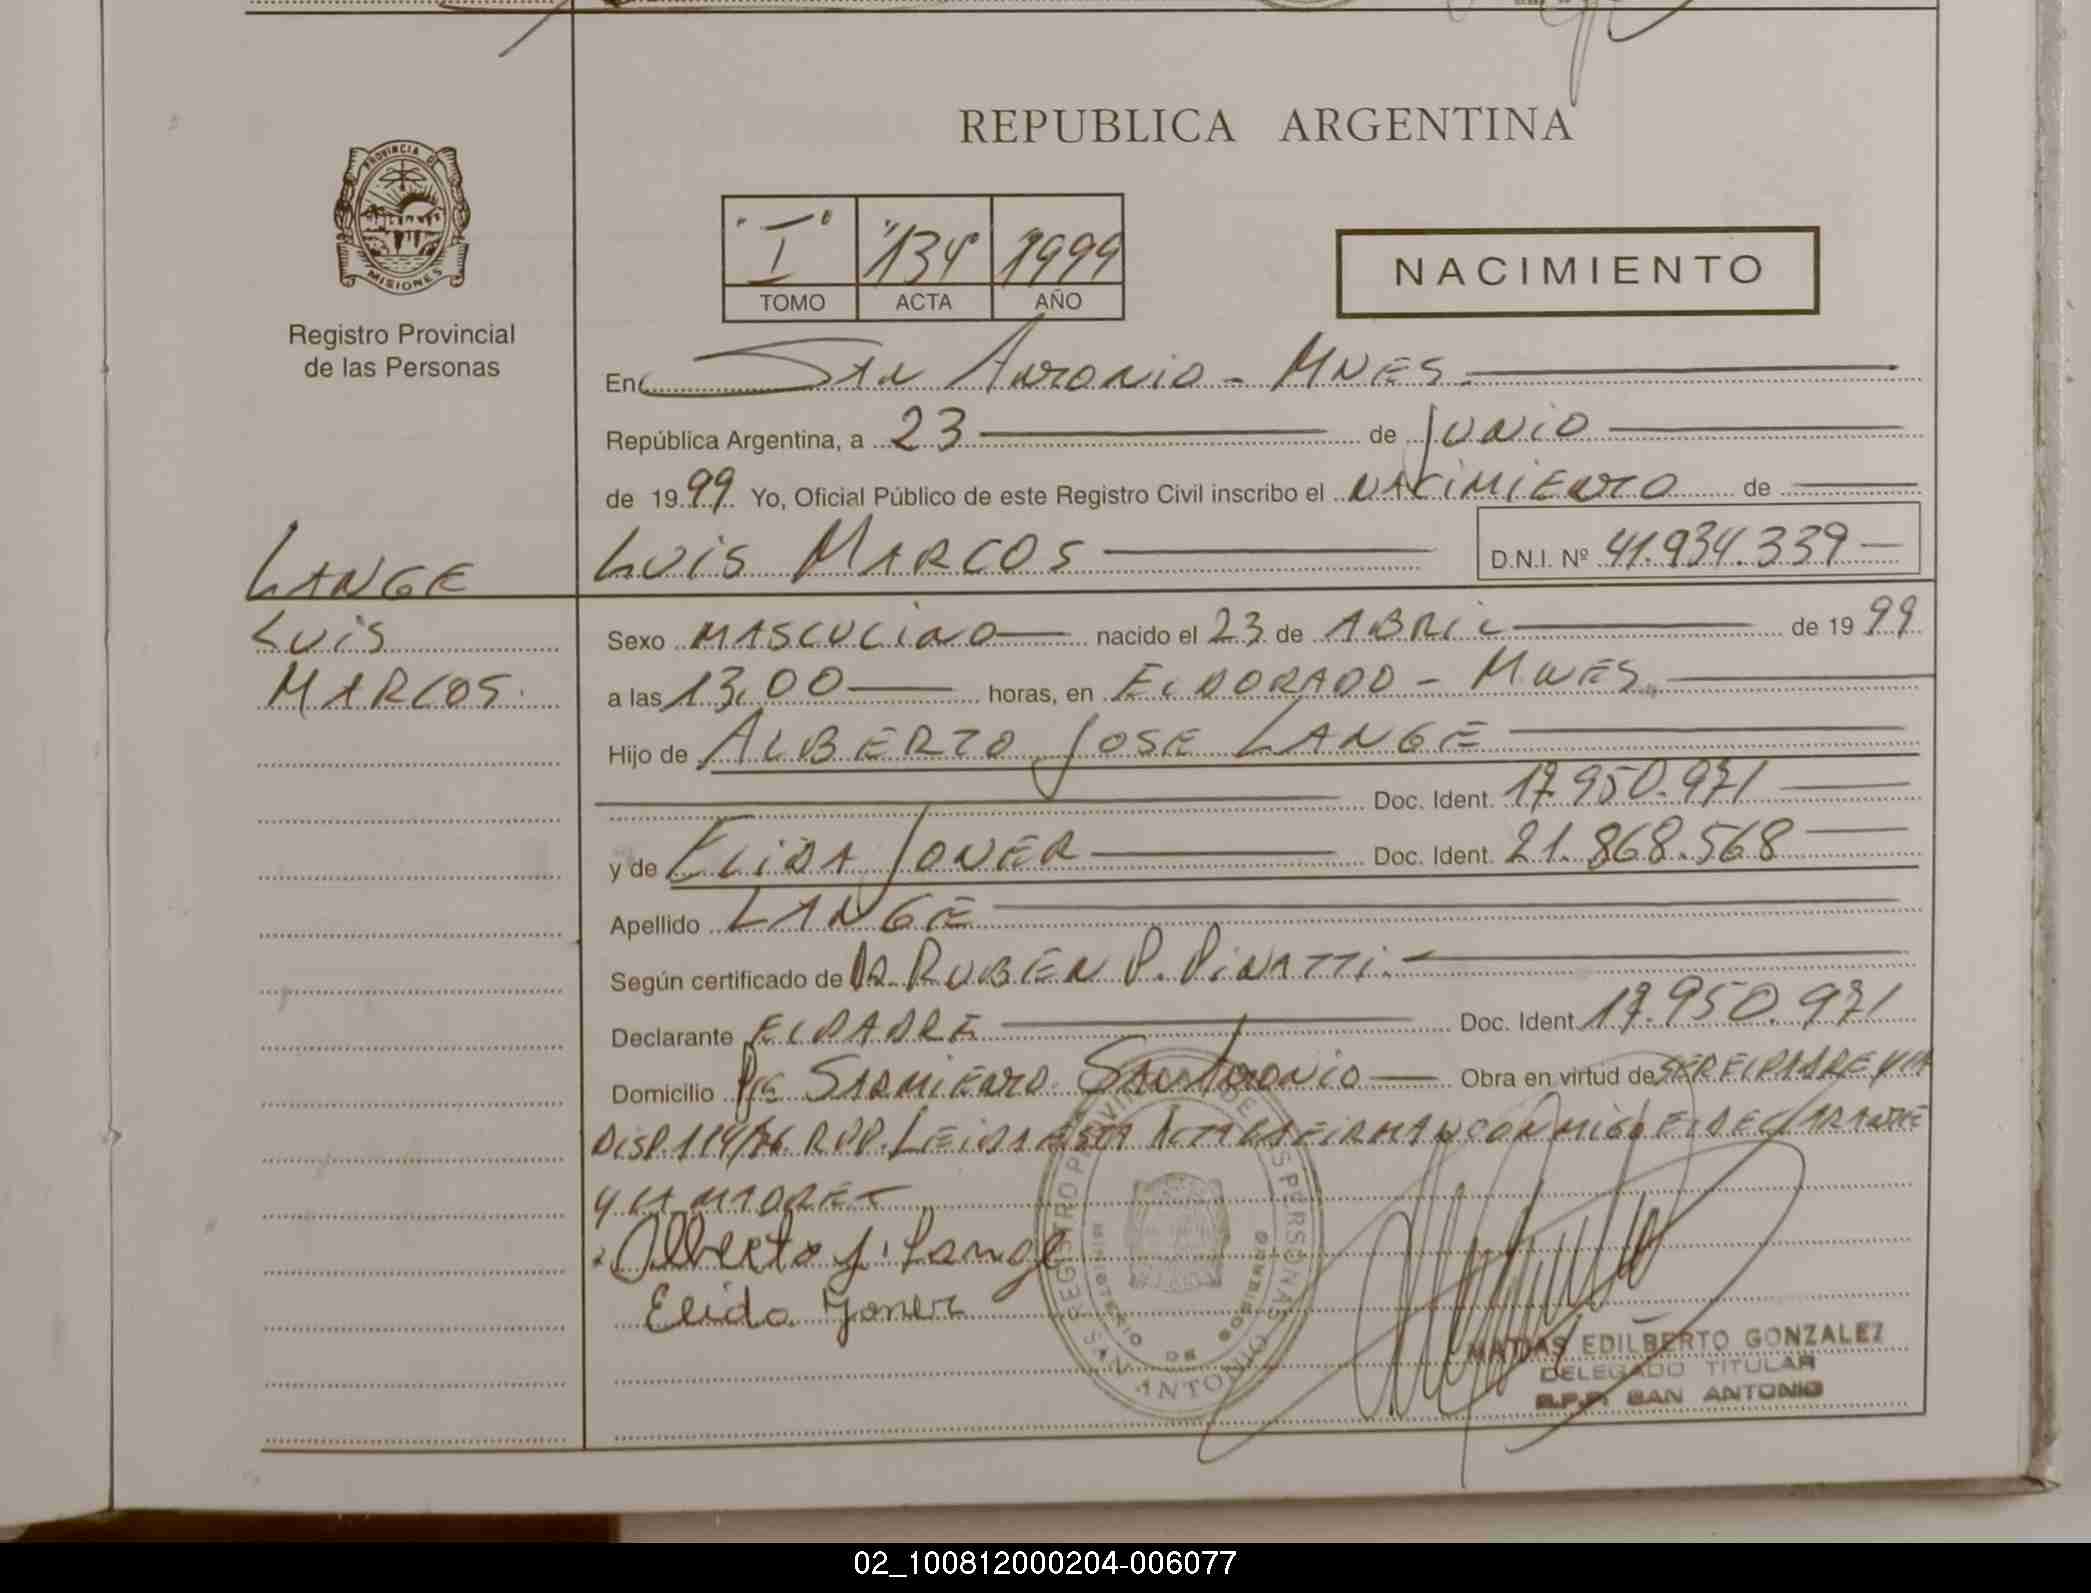 REPUBLICA ARGENTINA
PROVINCIA DE
MISIONES
Registro Provincial
de las Personas
"I" "134" 1999
TOMO ACTA AÑO
NACIMIENTO
En SAN ANTONIO - MNES.
República Argentina, a 23 de JUNIO
de 1999 Yo, Oficial Público de este Registro Civil inscribo el NACIMIENTO de
LUIS MARCOS D.N.I. Nº 41.934.339
LANGE
LUIS
MARCOS.
Sexo MASCULINO nacido el 23 de ABRIL de 1999
a las 13,00 horas, en ELDORADO - MNES.
Hijo de ALBERTO JOSE LANGE
Doc. Ident. 17.950.971
y de ELIDA JONER Doc. Ident. 21.868.568
Apellido LANGE
Según certificado de DR. RUBEN P. PINATTI.
Declarante EL PADRE Doc. Ident. 17.950.971
Domicilio SARMIENTO. SAN ANTONIO Obra en virtud de SER EL PADRE Y LA
DISP. 114/76. RPP. LEIDA ESTA ACTA LA FIRMAN CONMIGO EL DECLARANTE
Y LA MADRE
Alberto J. Lange
Elida Joner
REGISTRO PROVINCIAL DE LAS PERSONAS
MINISTERIO DE GOBIERNO
SAN ANTONIO
MATIAS EDILBERTO GONZALEZ
DELEGADO TITULAR
R.P.P. SAN ANTONIO
02_100812000204-006077